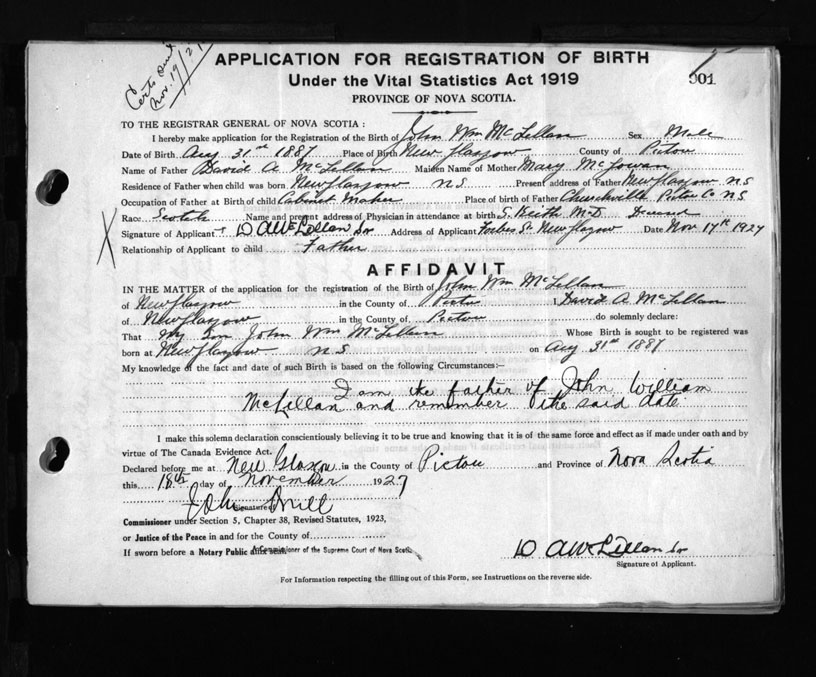 Certs Sent
Nov. 19/27
APPLICATION FOR REGISTRATION OF BIRTH
Under the Vital Statistics Act 1919
901
PROVINCE OF NOVA SCOTIA.
TO THE REGISTRAR GENERAL OF NOVA SCOTIA:
I hereby make application for the Registration of the Birth of John Wm McLellan Sex Male
Date of Birth Aug 31st 1887 Place of Birth New Glasgow County of Pictou
Name of Father David A McLellan Maiden Name of Mother Mary McGowan
Residence of Father when child was born New Glasgow N S Present address of Father New Glasgow N S
Occupation of Father at Birth of child Cabinet Maker Place of birth of Father Churchville Pictou Co N S
Race Scotch Name and present address of Physician in attendance at birth S. Keith M.D.
Signature of Applicant D A McLellan Sr Address of Applicant Forbes St New Glasgow Date Nov 17th 1927
Relationship of Applicant to child Father
X
AFFIDAVIT
IN THE MATTER of the application for the registration of the Birth of John Wm McLellan
of New Glasgow in the County of Pictou I David A. McLellan
of New Glasgow in the County of Pictou do solemnly declare:
That My Son John Wm McLellan Whose Birth is sought to be registered was
born at New Glasgow N S on Aug 31st 1887
My knowledge of the fact and date of such Birth is based on the following Circumstances:—
I am the father of John William
McLellan and remember the said date
I make this solema declaration conscientiously believing it to be true and knowing that it is of the same force and effect as if made under oath and by
virtue of The Canada Evidence Act.
Declared before me at New Glasgow in the County of Pictou and Province of Nova Scotia
this 18th day of November 1927
John
Signature
Commissioner under Section 5, Chapter 38, Revised Statutes, 1923,
or Justice of the Peace in and for the County of
If sworn before a Notary Public affix seal. A Commissioner of the Supreme Court of Nova Scotia
D A McLellan Sr
Signature of Applicant.
For Information respecting the filling out of this Form, see Instructions on the reverse side.